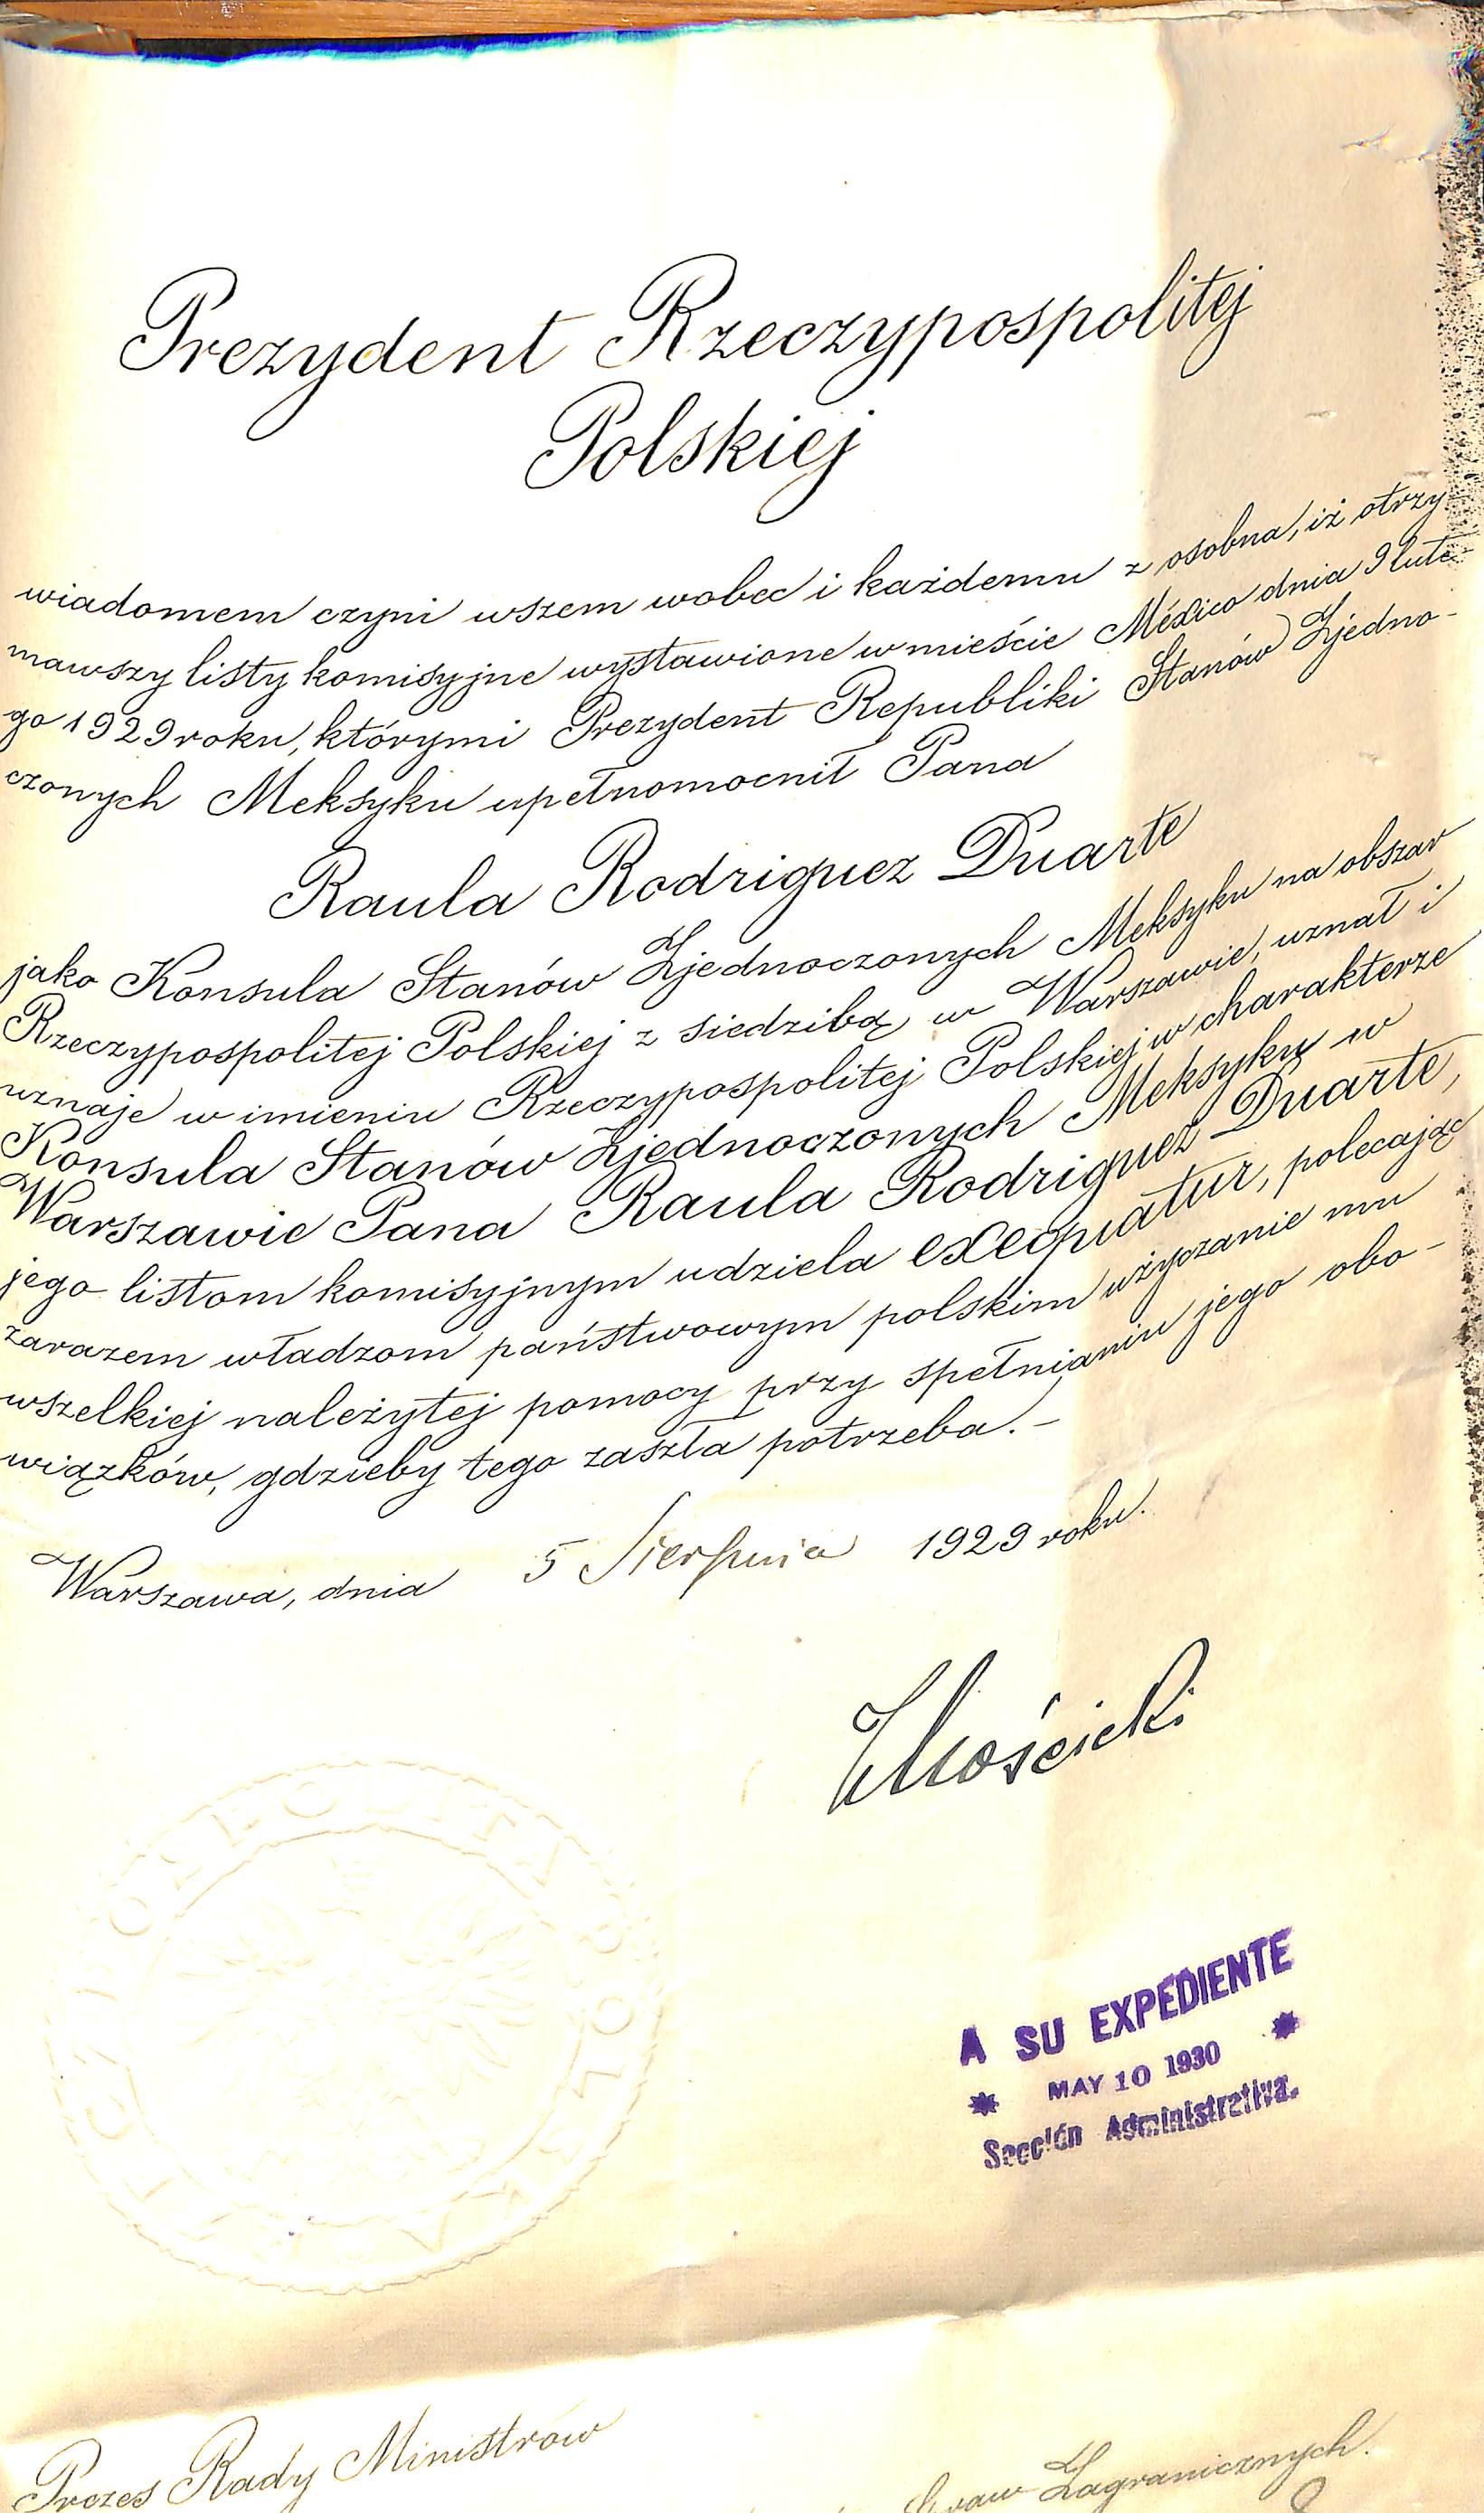 Prezydent Rzeczypospolitej
Polskiej
wiadomem czyni wszem wobec i każdemu z osobna, iż otrzy-
mawszy listy komisyjne wystawione w mieście México dnia 9 lute-
go 1929 roku, którymi Prezydent Republiki Stanów Zjedno-
czonych Meksyku upełnomocnił Pana
Raula Rodriguez Duarte
jako Konsula Stanów Zjednoczonych Meksyku na obszar
Rzeczypospolitej Polskiej z siedzibą w Warszawie, uznał i
uznaje w imieniu Rzeczypospolitej Polskiej w charakterze
Konsula Stanów Zjednoczonych Meksyku w
Warszawie Pana Raula Rodriguez Duarte,
jego listom komisyjnym udziela exequatur, polecając
zarazem władzom państwowym polskim użyczanie mu
wszelkiej należytej pomocy przy spełnianiu jego obo-
wiązków, gdzieby tego zaszła potrzeba.-
Warszawa, dnia 5 Sierpnia 1929 roku.
IMościcki
A SU EXPEDIENTE
MAY 10 1930
Sección Administrativa.
Prezes Rady Ministrów
Spraw Zagranicznych.